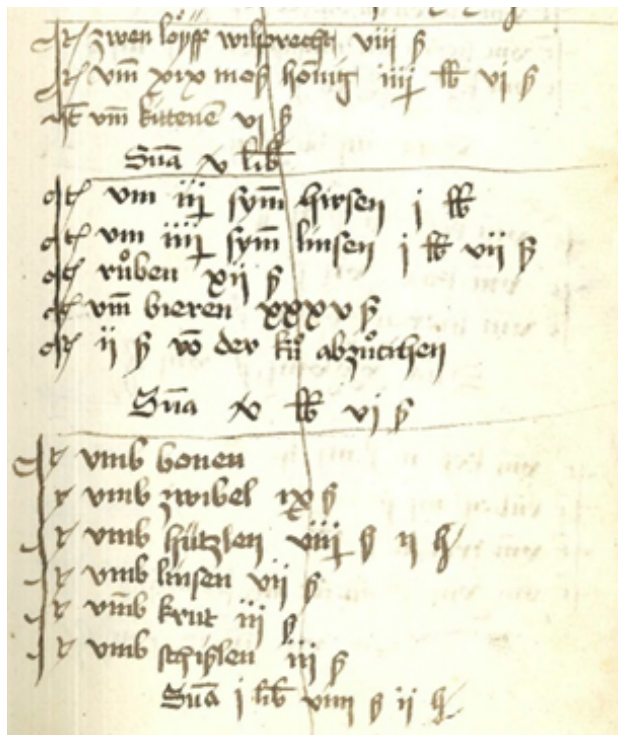 zwen löyff wilprecht viii ß
vm̄ xix mess honig iiij lb vi ß
It vm̄ küttenē vi ß
Sūa v lib
It vm iij sym̄ hirsen j lb
It vm iiij sym̄ linsen j lb vii ß
It růben xij ß
It vm̄ bieren xxxv ß
It ij ß vō der ků abzůcihen
Sūa x lb vj ß
It vmb bonen
It vmb zwibel ix ß
It vmb hützlen viiij ß ij h
It vmb linsen vij ß
It vm̄b krut iij ß
It vmb schislen iij ß
Sūa j lib viiii ß ij h